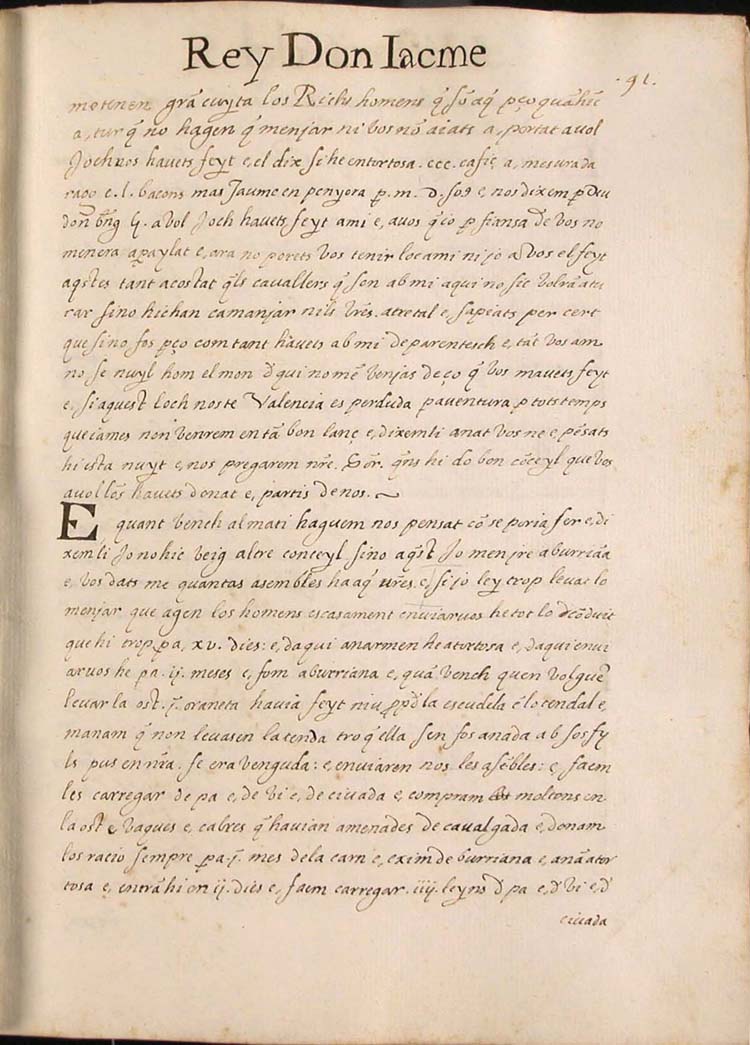 Rey Don Iacme
.91.
me tenen grã cuyta los Richs homens q̃ sõ aq̃ pço quã hic
a, tur q̃ no hagen q̃ menjar ni bos nõ aiats a, portat auol
Joch nos hauets feyt e, el dix si he entortosa. ccc. cafiç a, mesurada
raço e. l. bacons mas Jaume en penyora p. m. D. soꝯ e, nos dixem p Deu
don bñg G. auol Joch hauets feyt ami e, auos q̃ io p fiansa de vos no
menera apaylat e, ara no porets vos tenir loc ami ni jo a vos el feyt
aqstes tant acostat qls cauallers q̃ son ab mi aqui no sic volrã atu
rar sino hichan camanjar nils vr̃es. atretal e, sapiats per cert
que sino fos pço com tant hauets ab mi de parentesch e, tãt vos am
no se nuyl hom el mon d̃ qui no mẽ venjas de ço q̃ vos mauets feyt
e, si aquest loch nos te Valencia es perduda pauentura p tots temps
que iames non venrem en tã bon lanç e, dixem li anat vos ne e, pẽsats
hi esta nuyt e, nos pregarem nr̃e. Sor̃. qñs hi do bon cõceyl que vos
auol lõs hauets donat e, partis de nos.
E quant vench al mati haguem nos pensat cõ se poria fer e, di
xem li Jo no hic veig altre conceyl sino aqst Jo menjre a burriãa
e, vos dats me quantas asembles ha aq̃ vr̃es. e, si jo ley trop leuar lo
menjar que agen los homens escasament enuiaruos he tot lo cõduit
que hi trop pa, xv. dies: e, daqui anarmen he atortosa e, daqui enui
aruos he pa. ij. meses e, fom aburriana e, quã vench quen volguẽ
leuar la ost. j. oraneta hauia feyt niu prop d̃ la escudela ẽ lo tendal e,
manam q̃ non leuasen la tenda tro q̃ ella sen fos anada ab sos fy
ls pus en nr̃a. fe era venguda: e, enuiaren nos les asẽbles: e, faem
les carregar de pa e, de vi e, de ciuada e, compram moltons en
la ost e vaques e, cabres q̃ hauian amenades de caualgada e, donam
los racio sempre pa. j. mes dela carn e, exim de burriana e, anã ator
tosa e, entrã hi en ij. dies e, faem carregar. iiij. leyns d̃ pa e, d̃ vi e, d̃
ciuada